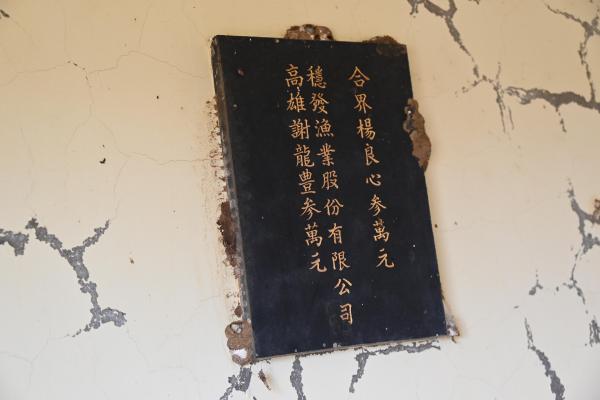 合界楊良心参萬元
穩發漁業股份有限公司
高雄謝龍豊参萬元